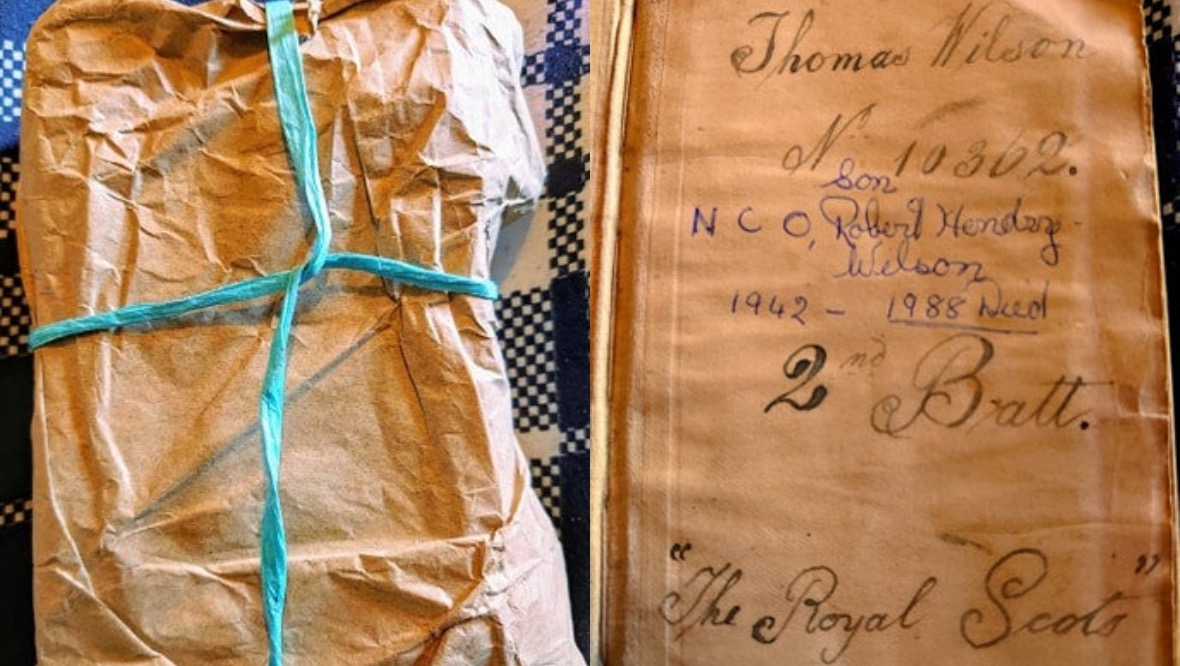 Thomas Wilson
No 10362.
Son
N C O, Robert Hendry-
Wilson
1942 - 1988 Died
2nd Batt.
"The Royal Scots"